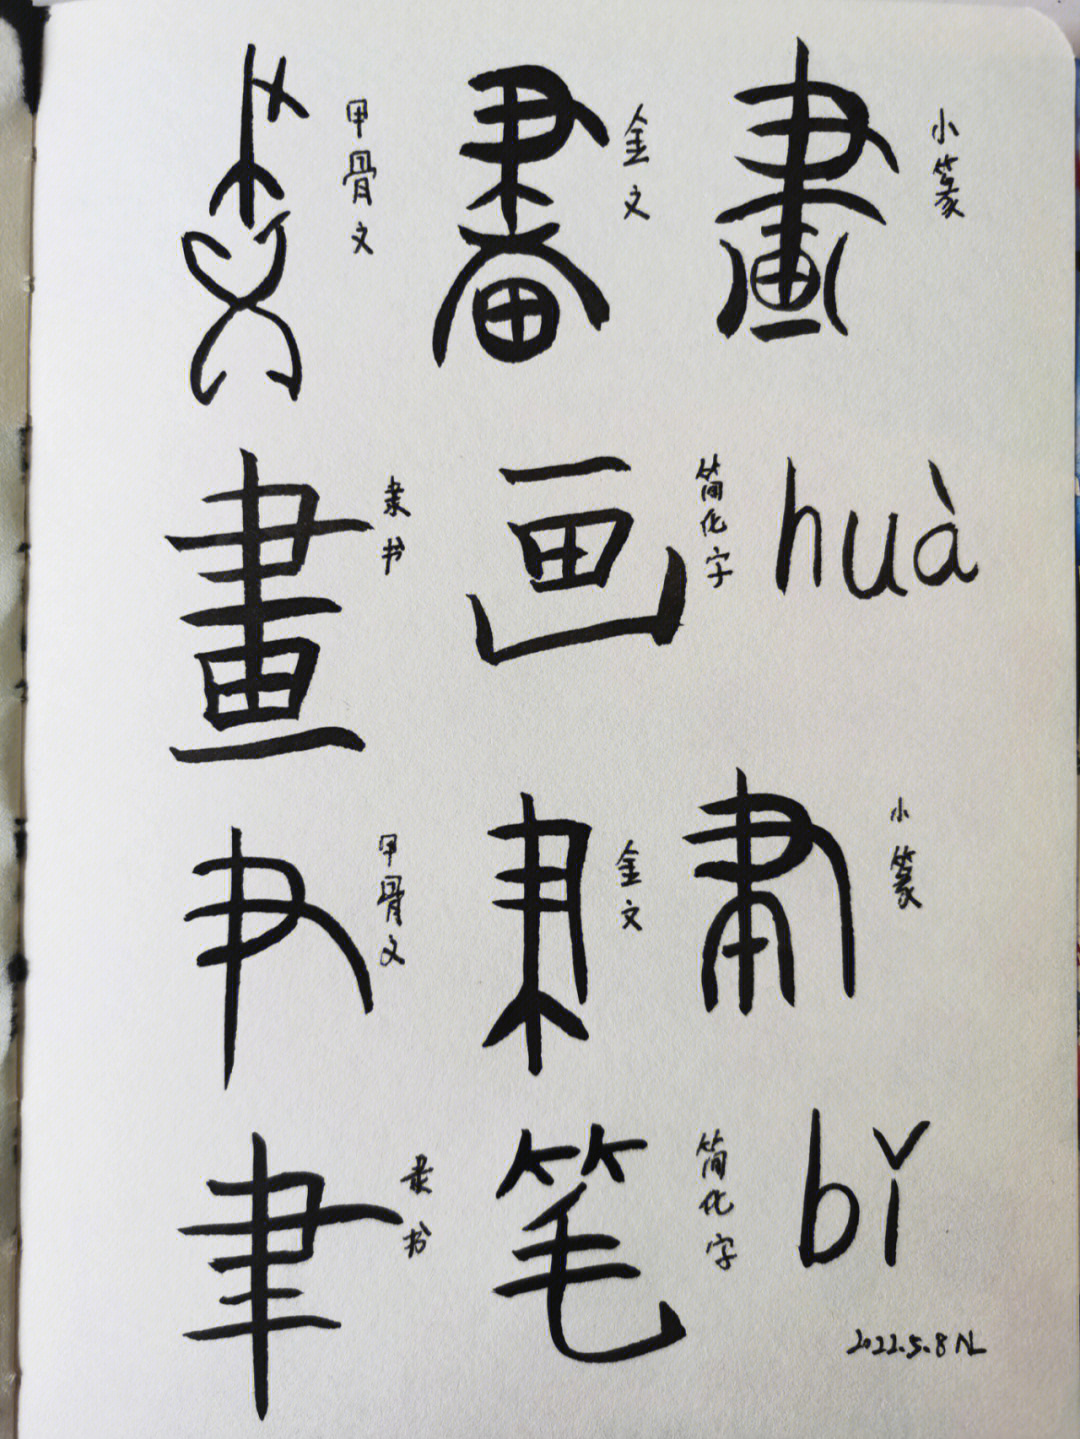 甲骨文
金文
小篆
畫 隶书
画 简化字 huà
甲骨文
金文
小篆
聿 隶书
笔 简化字 bǐ
2022.5.8 NL